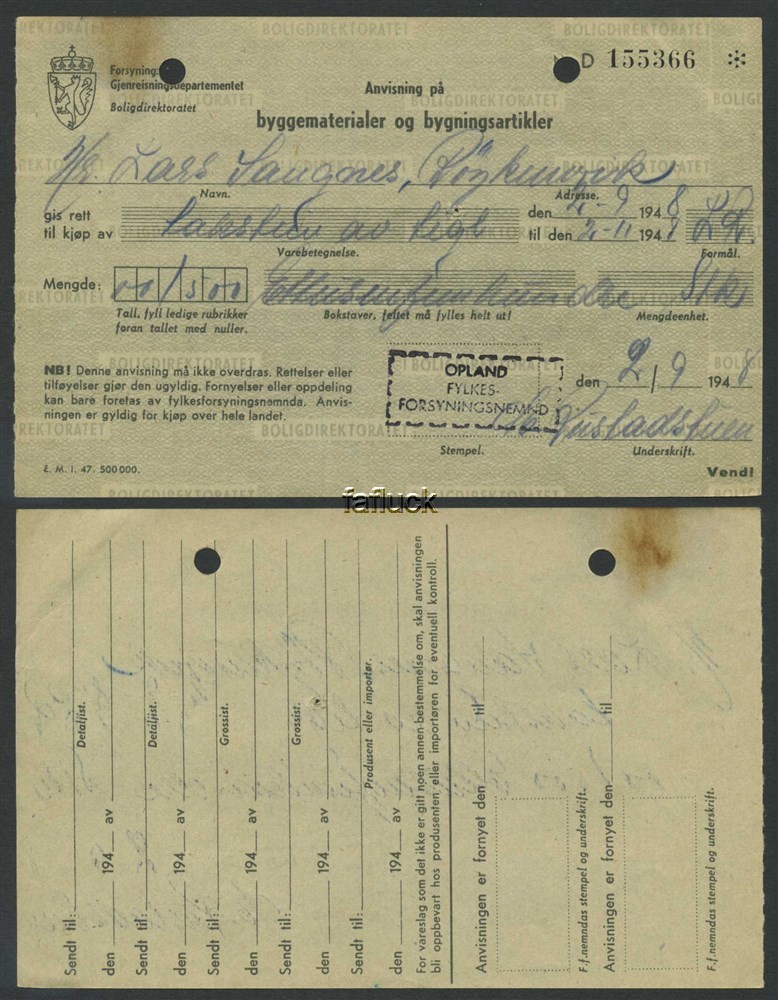 BOLIGDIREKTORATET BOLIGDIREKTORATET
Forsyning
Gjenreisningsdepartementet
Boligdirektoratet
D 155366
Anvisning på
byggematerialer og bygningsartikler
Lars
Navn. Adresse.
gis rett
til kjøp av
taksten av tegl
den 2-9 1948
til den 2-11 1948
Varebetegnelse. Formål.
Mengde: 00/500 Stk
Tall, fyll ledige rubrikker
foran tallet med nuller.
Bokstaver, feltet må fylles helt ut! Mengdeenhet.
NB! Denne anvisning må ikke overdras. Rettelser eller
tilføyelser gjør den ugyldig. Fornyelser eller oppdeling
kan bare foretas av fylkesforsyningsnemnda. Anvis-
ningen er gyldig for kjøp over hele landet.
OPLAND
FYLKES-
FORSYNINGSNEMND
den 2/9 1948
Stempel. Underskrift.
E. M. I. 47. 500 000.
Vend!
fafluck
Sendt til:
Detaljist.
den 194 av
Sendt til:
Detaljist.
den 194 av
Sendt til:
Grossist.
den 194 av
Sendt til:
Grossist.
den 194 av
Sendt til:
Produsent eller importør.
den 194 av
For vareslag som det ikke er gitt noen annen bestemmelse om, skal anvisningen
bli oppbevart hos produsenten eller importøren for eventuell kontroll.
Anvisningen er fornyet den til
F.f.nemndas stempel og underskrift.
Anvisningen er fornyet den til
F.f.nemndas stempel og underskrift.